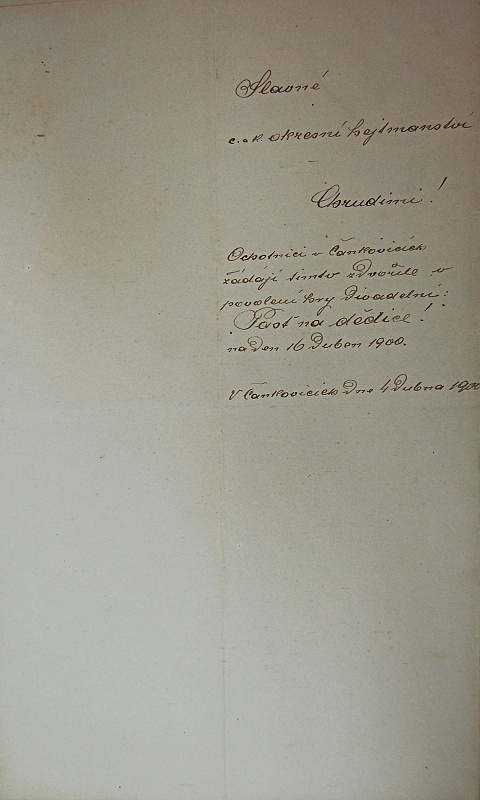 Slavné
c. a k. okresní hejtmanství
Chrudimi!
Ochotníci v Čankovicích
žádají tímto zdvořile o
povolení hry divadelní:
"Past na dědice!
na den 16 Duben 1900.
V Čankovicích Dne 4 Dubna 1900